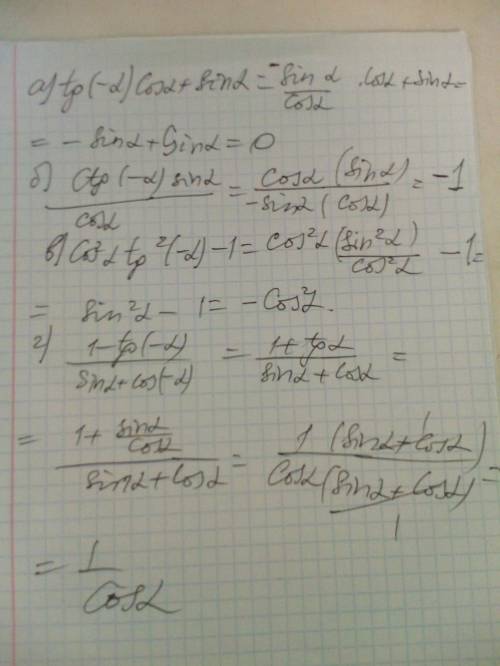 а) tg(-α) cosα + sinα = -sinα/cosα · cosα + sinα =
= - sinα + sinα = 0
б) ctg(-α) sinα / cosα = cosα (sinα) / -sinα (cosα) = -1
в) cos²α tg²(-α) - 1 = cos²α (sin²α)/cos²α - 1 =
= sin²α - 1 = - cos²α.
г) 1 - tg(-α) / sinα + cos(-α) = 1 + tgα / sinα + cosα =
= 1 + sinα/cosα / sinα + cosα = 1 (sinα + cosα) 1 / cosα (sinα + cosα) 1 =
= 1/cosα